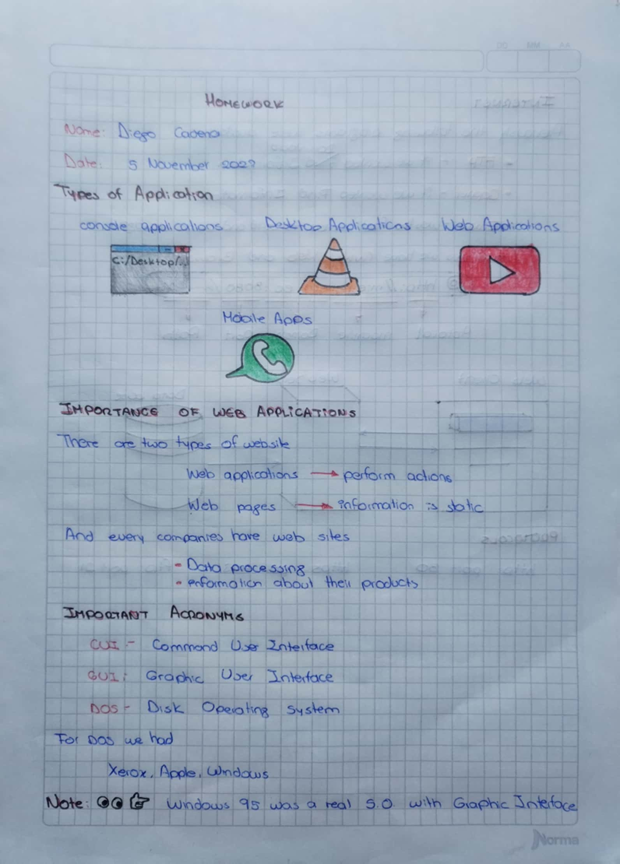 HOMEWORK
Name: Diego
Date: 5 November 202?
Types of Application
console applications Desktop Applications Web Applications
C:/Desktop/..
Mobile Apps
IMPORTANCE OF WEB APPLICATIONS
There are two types of website
Web applications → perform actions
Web pages → information is static
And every companies have web sites
- Data processing
- information about their products
IMPORTANT ACRONYMS
CUI:- Command User Interface
GUI: Graphic User Interface
DOS:- Disk Operating System
For DOS we had
Xerox, Apple, Windows
Note: Windows 95 was a real S.O with Graphic Interface
Norma